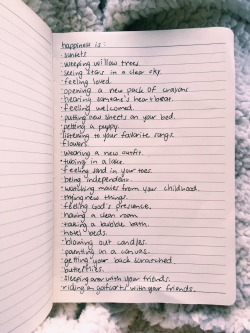 happiness is:
· sunsets
· weeping willow trees.
· seeing stars in a clear sky.
· feeling loved.
· opening a new pack of crayons
· hearing someone's heartbeat.
· feeling welcomed.
· putting new sheets on your bed.
· petting a puppy.
· listening to your favorite songs.
· flowers.
· wearing a new outfit.
· tubing in a lake.
· feeling sand in your toes.
· being independent.
· watching movies from your childhood.
· trying new things.
· feeling God's presence.
· having a clean room
· taking a bubble bath.
· hotel beds.
· blowing out candles.
· painting on a canvas.
· getting your back scratched.
· butterflies.
· sleeping over with your friends.
· riding in golfcarts with your friends.